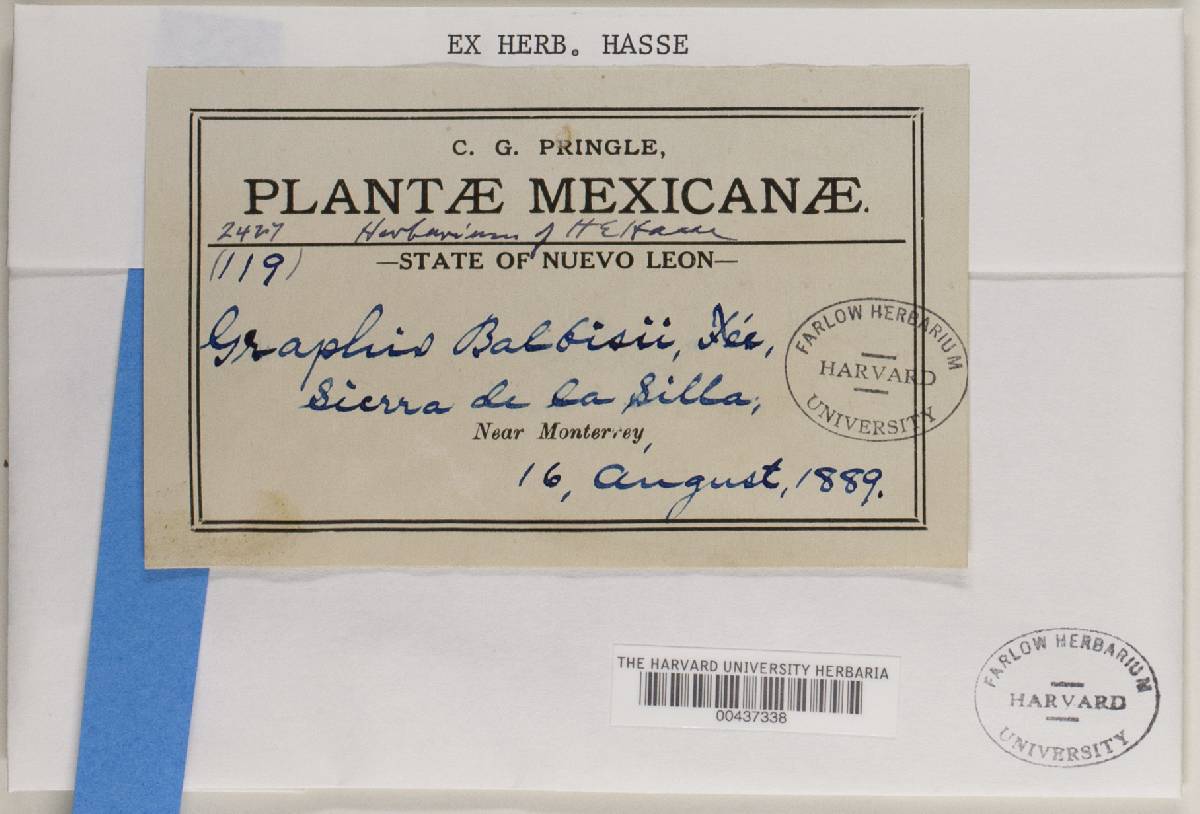 EX HERB. HASSE
C. G. PRINGLE,
PLANTÆ MEXICANÆ.
2427 Herbarium of H E Hasse
(119) —STATE OF NUEVO LEON—
Graphis Balbisii, Fée,
Sierra de la Silla,
Near Monterrey,
16, August, 1889.
FARLOW HERBARIUM
HARVARD
UNIVERSITY
THE HARVARD UNIVERSITY HERBARIA
00437338
FARLOW HERBARIUM
HARVARD
UNIVERSITY